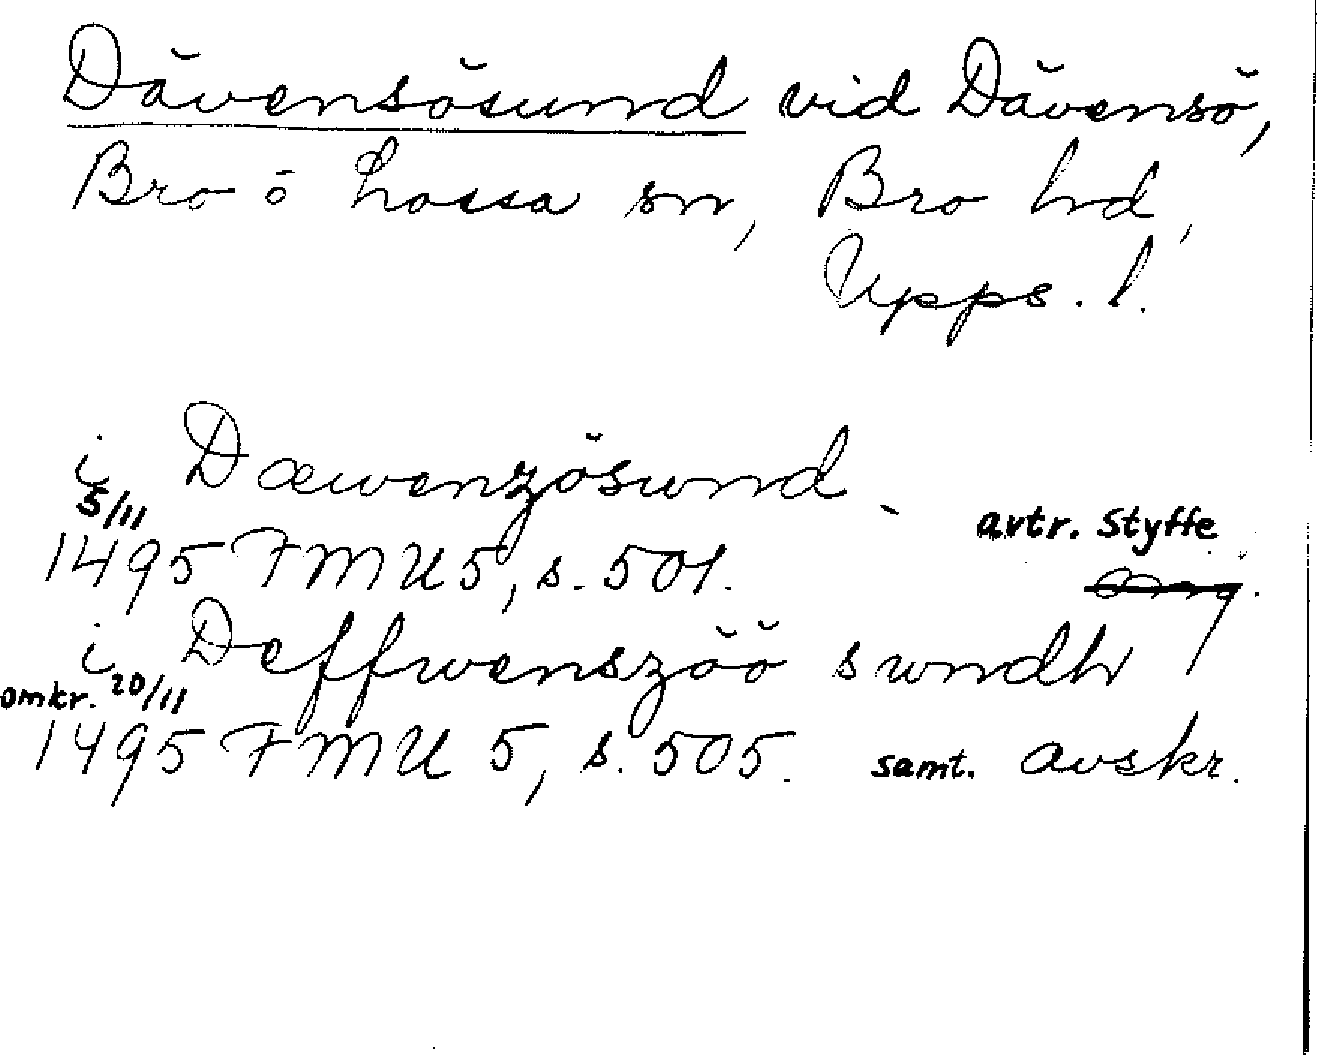 Dävensösund vid Dävensö,
Bro o Lossa sn, Bro hd,
Upps. l.
i Dæwenzösund
5/11
1495 FMU 5, s. 501. avtr. Styffe
i Deffwenszöö sundh
omkr. 20/11
1495 FMU 5, s. 505. samt. avskr.